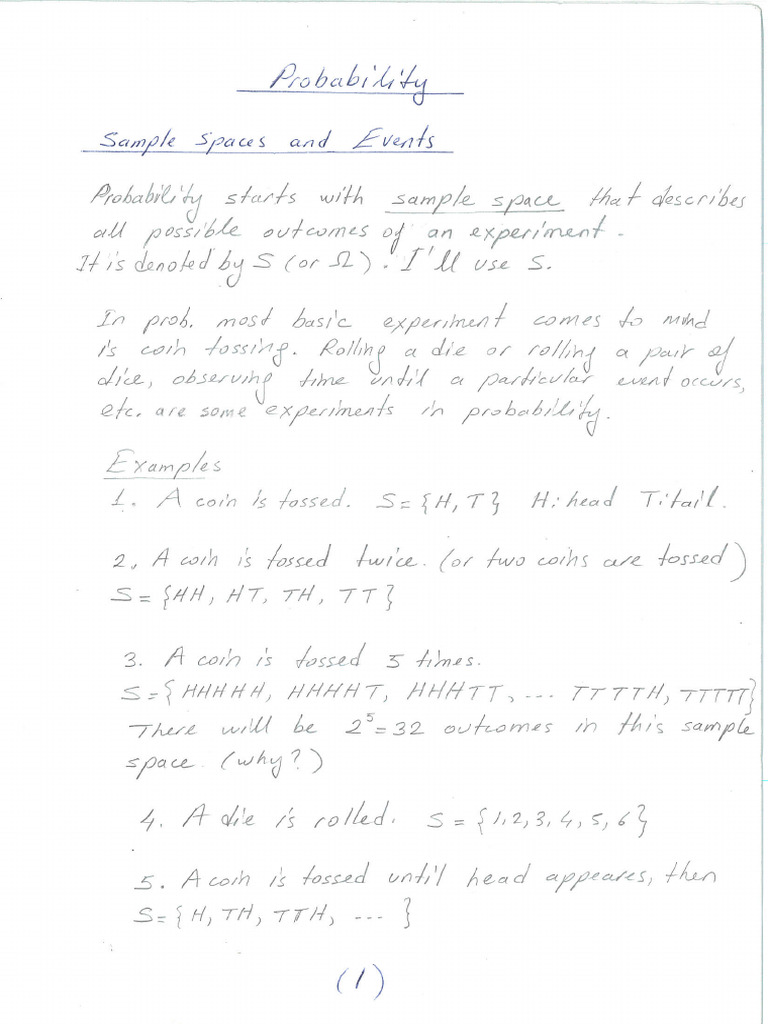 Probability
Sample Spaces and Events
Probability starts with sample space that describes
all possible outcomes of an experiment.
It is denoted by S (or Ω). I'll use S.
In prob. most basic experiment comes to mind
is coin tossing. Rolling a die or rolling a pair of
dice, observing time until a particular event occurs,
etc. are some experiments in probability.
Examples
1. A coin is tossed. S={H,T} H:head T:tail.
2. A coin is tossed twice. (or two coins are tossed)
S={HH, HT, TH, TT}
3. A coin is tossed 5 times.
S={HHHHH, HHHHT, HHHTT, ... TTTTH, TTTTT}
There will be 2⁵=32 outcomes in this sample
space. (why?)
4. A die is rolled. S={1,2,3,4,5,6}
5. A coin is tossed until head appeares, then
S={H, TH, TTH, ... }
(1)